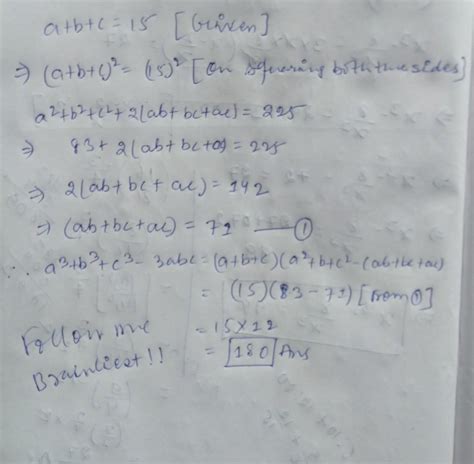 a+b+c = 15 [Given]
⇒ (a+b+c)² = (15)² [On squaring both the sides]
a²+b²+c²+2(ab+bc+ac) = 225
⇒ 83+2(ab+bc+ac) = 225
⇒ 2(ab+bc+ac) = 142
⇒ (ab+bc+ac) = 71 —— ①
∴ a³+b³+c³-3abc = (a+b+c)(a²+b+c²-(ab+bc+ac)
= (15)(83-71) [from ①]
= 15×12
= 180 Ans
Follow me
Brainliest!!